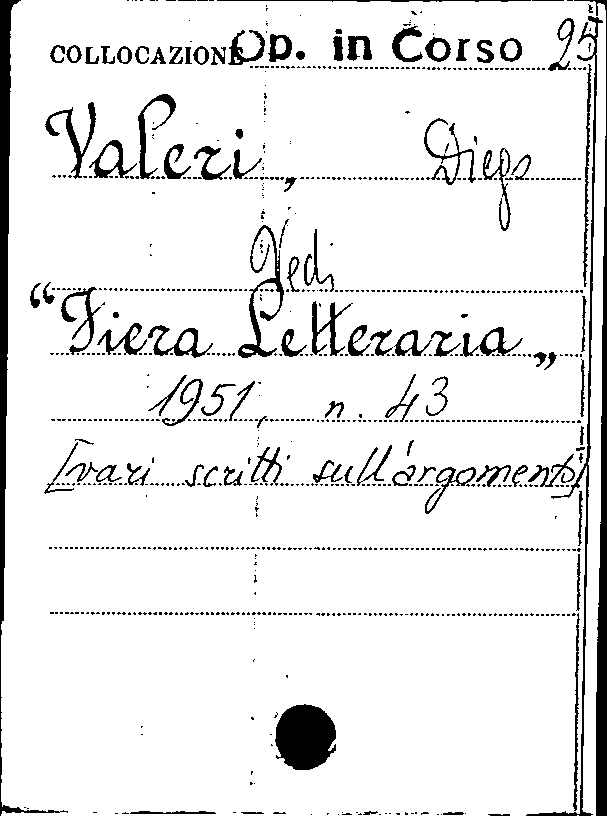 COLLOCAZIONE Op. in Corso 95
Valeri, Diego
Vedi
“Fiera Letteraria„
1951, n. 43
[vari scritti sull'argomento]